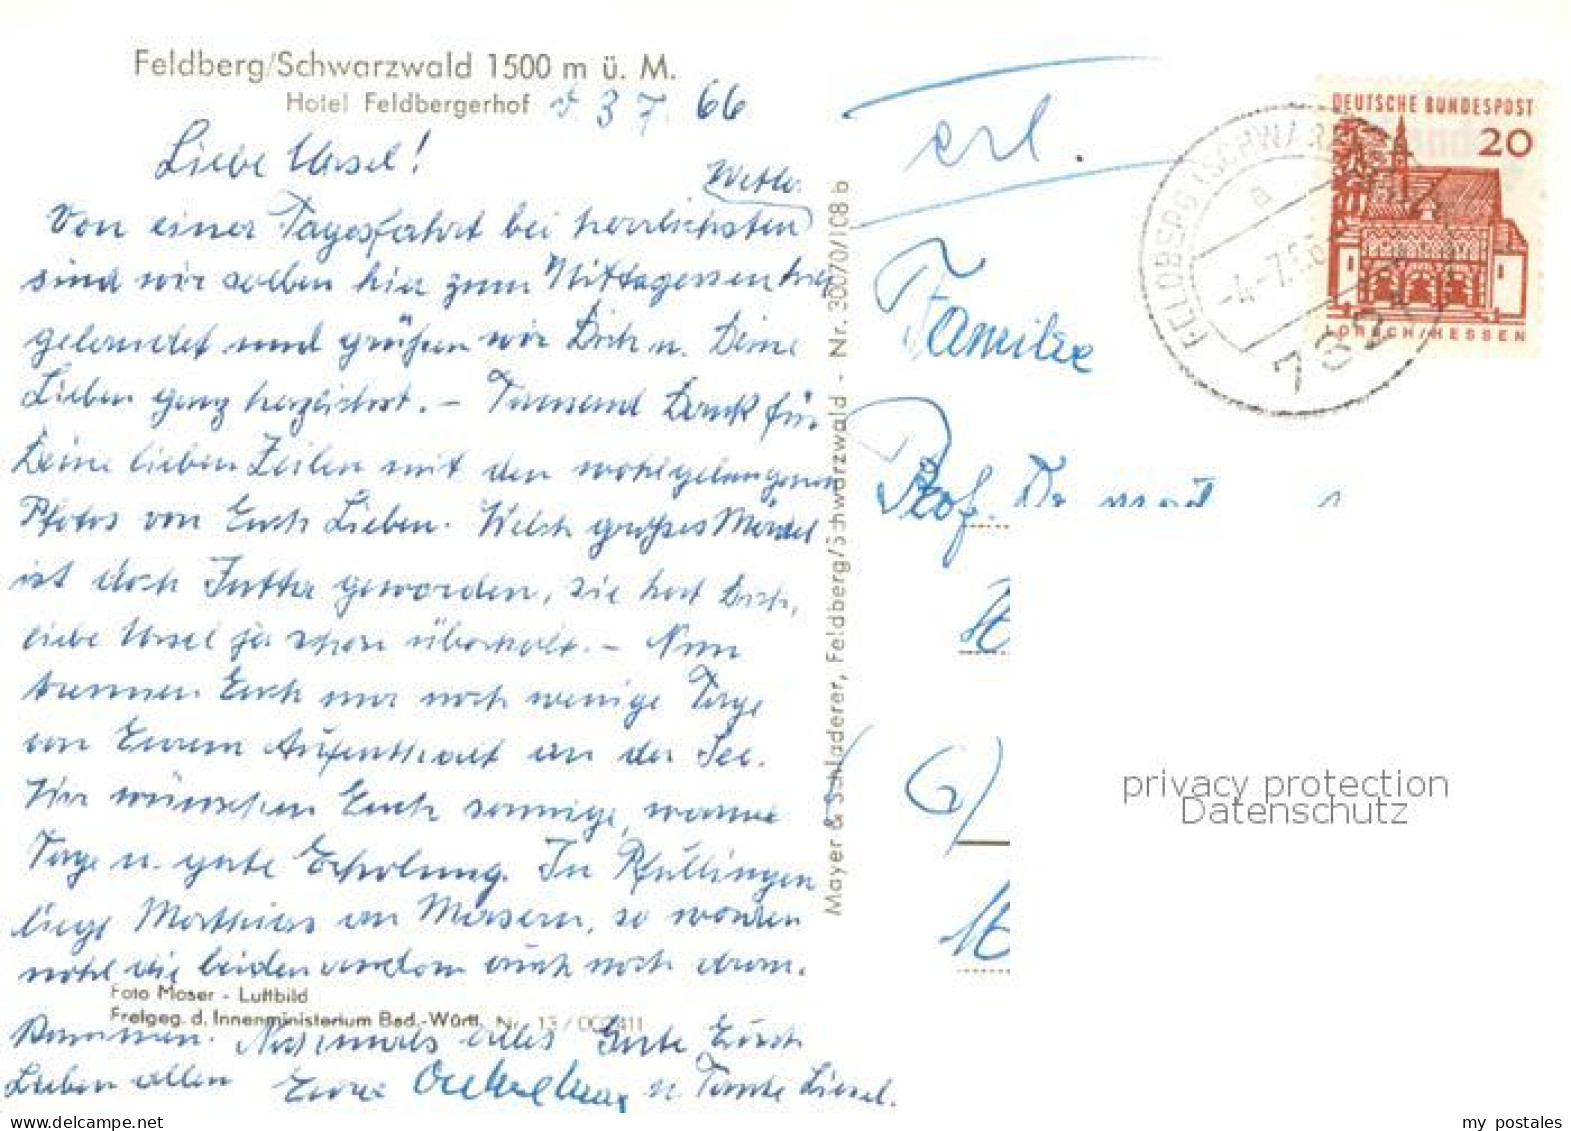 Feldberg/Schwarzwald 1500 m ü. M.
Hotel Feldbergerhof
d. 3. 7. 66
Liebe Ursel!
Von einer Tagesfahrt bei herrlichsten Wetter
sind wir soeben hier zum Mittagessen
gelandet und grüßen wir Dich u. Deine
Lieben ganz herzlichst. – Tausend Dank für
Deine lieben Zeilen mit den wohlgelungenen
Photos von Euch Lieben. Welch großes Mädel
ist doch Jutta geworden, sie hat Dich,
liebe Ursel ja schon überholt. – Nun
trennen Euch nur noch wenige Tage
von Eurem Aufenthalt an der See.
Wir wünschen Euch sonnige, warme
Tage u. gute Erholung. In Pfullingen
liegt Mathias an Masern, so
wohl die beiden andern auch noch dran
kommen. Nochmals alles Gute Euch
Lieben allen Eure u. Tante Liesel.
Foto Moser - Luftbild
Freigeg. d. Innenministerium Bad.-Württ. Nr. 13/002411
Mayer & Schladerer, Feldberg/Schwarzwald - Nr. 30070/108 b
erl.
Familie
Prof. Dr.
DEUTSCHE BUNDESPOST
20
LORSCH/HESSEN
FELDBERG (SCHWARZW
a
privacy protection
Datenschutz
my postales